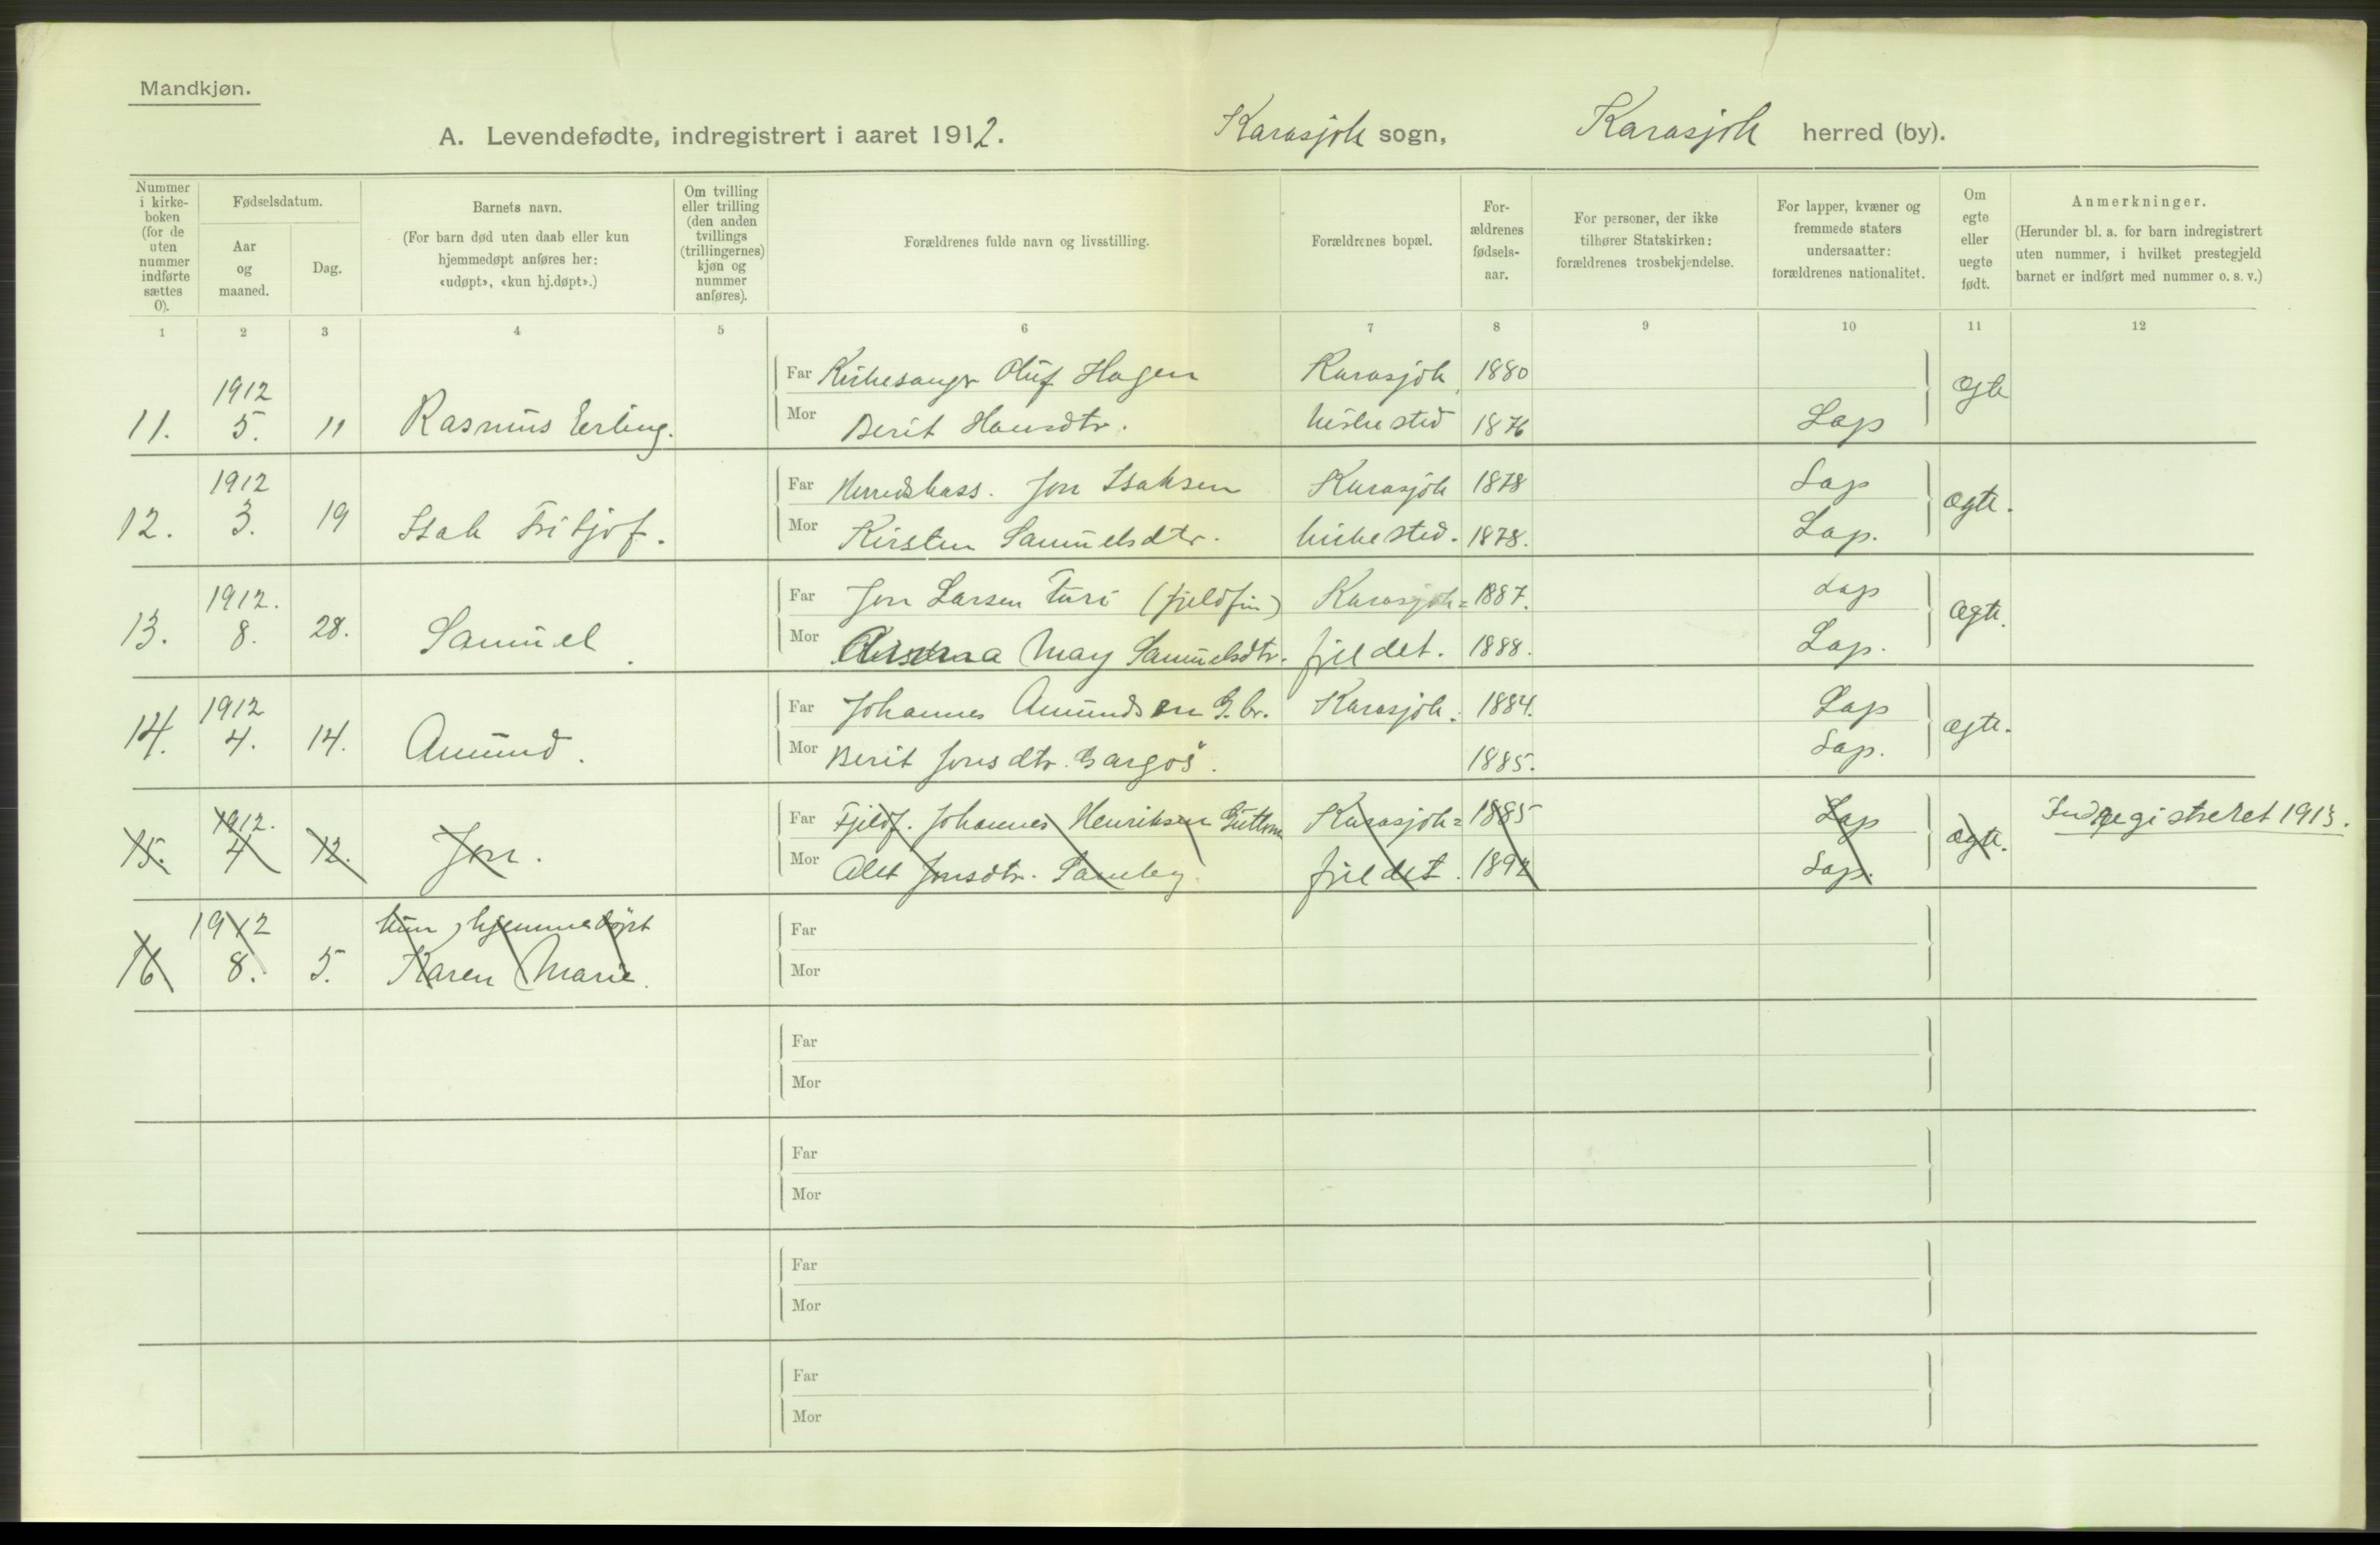 Mandkjøn.
A. Levendefødte, indregistrert i aaret 1912. Karasjok sogn, Karasjok herred (by).
Nummer i kirke- boken (for de uten nummer indførte sættes 0).
Fødselsdatum.
Aar og maaned.
Dag.
Barnets navn.
(For barn død uten daab eller kun hjemmedøpt anføres her: «udøpt», «kun hj.døpt».)
Om tvilling eller trilling (den anden tvillings (trillingernes) kjøn og nummer anføres).
Forældrenes fulde navn og livsstilling.
Forældrenes bopæl.
For- ældrenes fødsels- aar.
For personer, der ikke tilhører Statskirken: forældrenes trosbekjendelse.
For lapper, kvæner og fremmede staters undersaatter: forældrenes nationalitet.
Om egte eller uegte født.
Anmerkninger.
(Herunder bl. a. for barn indregistrert uten nummer, i hvilket prestegjeld barnet er indført med nummer o. s. v.)
1 2 3 4 5 6 7 8 9 10 11 12
11. 1912 5. 11 Rasmus Erling.
Far Kirkesanger Oluf Hagen Karasjok 1880 Ægte
Mor Berit Hansdtr. kirkested 1876 Lap
12. 1912 3. 19 Isak Fritjof.
Far Herredskass. Jon Isaksen Karasjok 1878 Lap ægte.
Mor Kirsten Samuelsdtr. kirkested. 1878. Lap.
13. 1912. 8. 28. Samuel.
Far Jon Larsen Turi (fjeldfin) Karasjok= 1887. Lap Ægte.
Mor May Samuelsdtr. fjeldet. 1888. Lap.
14. 1912 4. 14. Amund.
Far Johannes Amundsen G.br. Karasjok. 1884. Lap ægte.
Mor Berit Jonsdtr. 1885. Lap.
15. 1912. 4 12. Jon.
Far Fjeldf. Johannes Henriksen Guttorm Karasjok= 1885 Lap ægte. Indregistreret 1913.
Mor Jonsdtr. fjeldet. 1892 Lap.
16 1912 8. 5. kun hjemmedøpt
Karen Marie.
Far
Mor
Far
Mor
Far
Mor
Far
Mor
Far
Mor